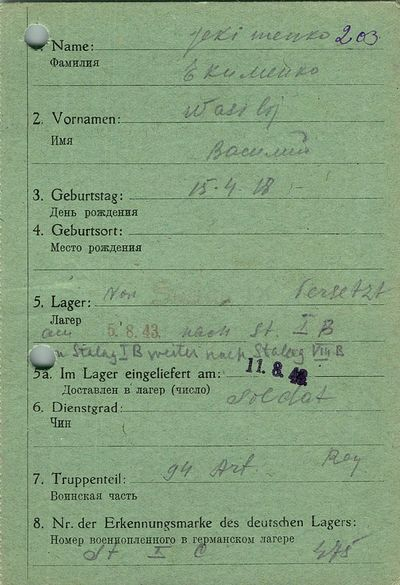 1. Name: Jekimenko 203
Фамилия Екименко
2. Vornamen: Wasilij
Имя Василий
3. Geburtstag: 15.4.18
День рождения
4. Geburtsort:
Место рождения
5. Lager: Von Versetzt
Лагер
am 5.8.43. nach St. I B
Stalag I B weiter nach Stalag VIII B
5a. Im Lager eingeliefert am: 11. 8. 43
Доставлен в лагер (число)
6. Dienstgrad: Soldat
Чин
7. Truppenteil: 94 Art. Reg
Воинская часть
8. Nr. der Erkennungsmarke des deutschen Lagers:
Номер военнопленного в германском лагере
St C